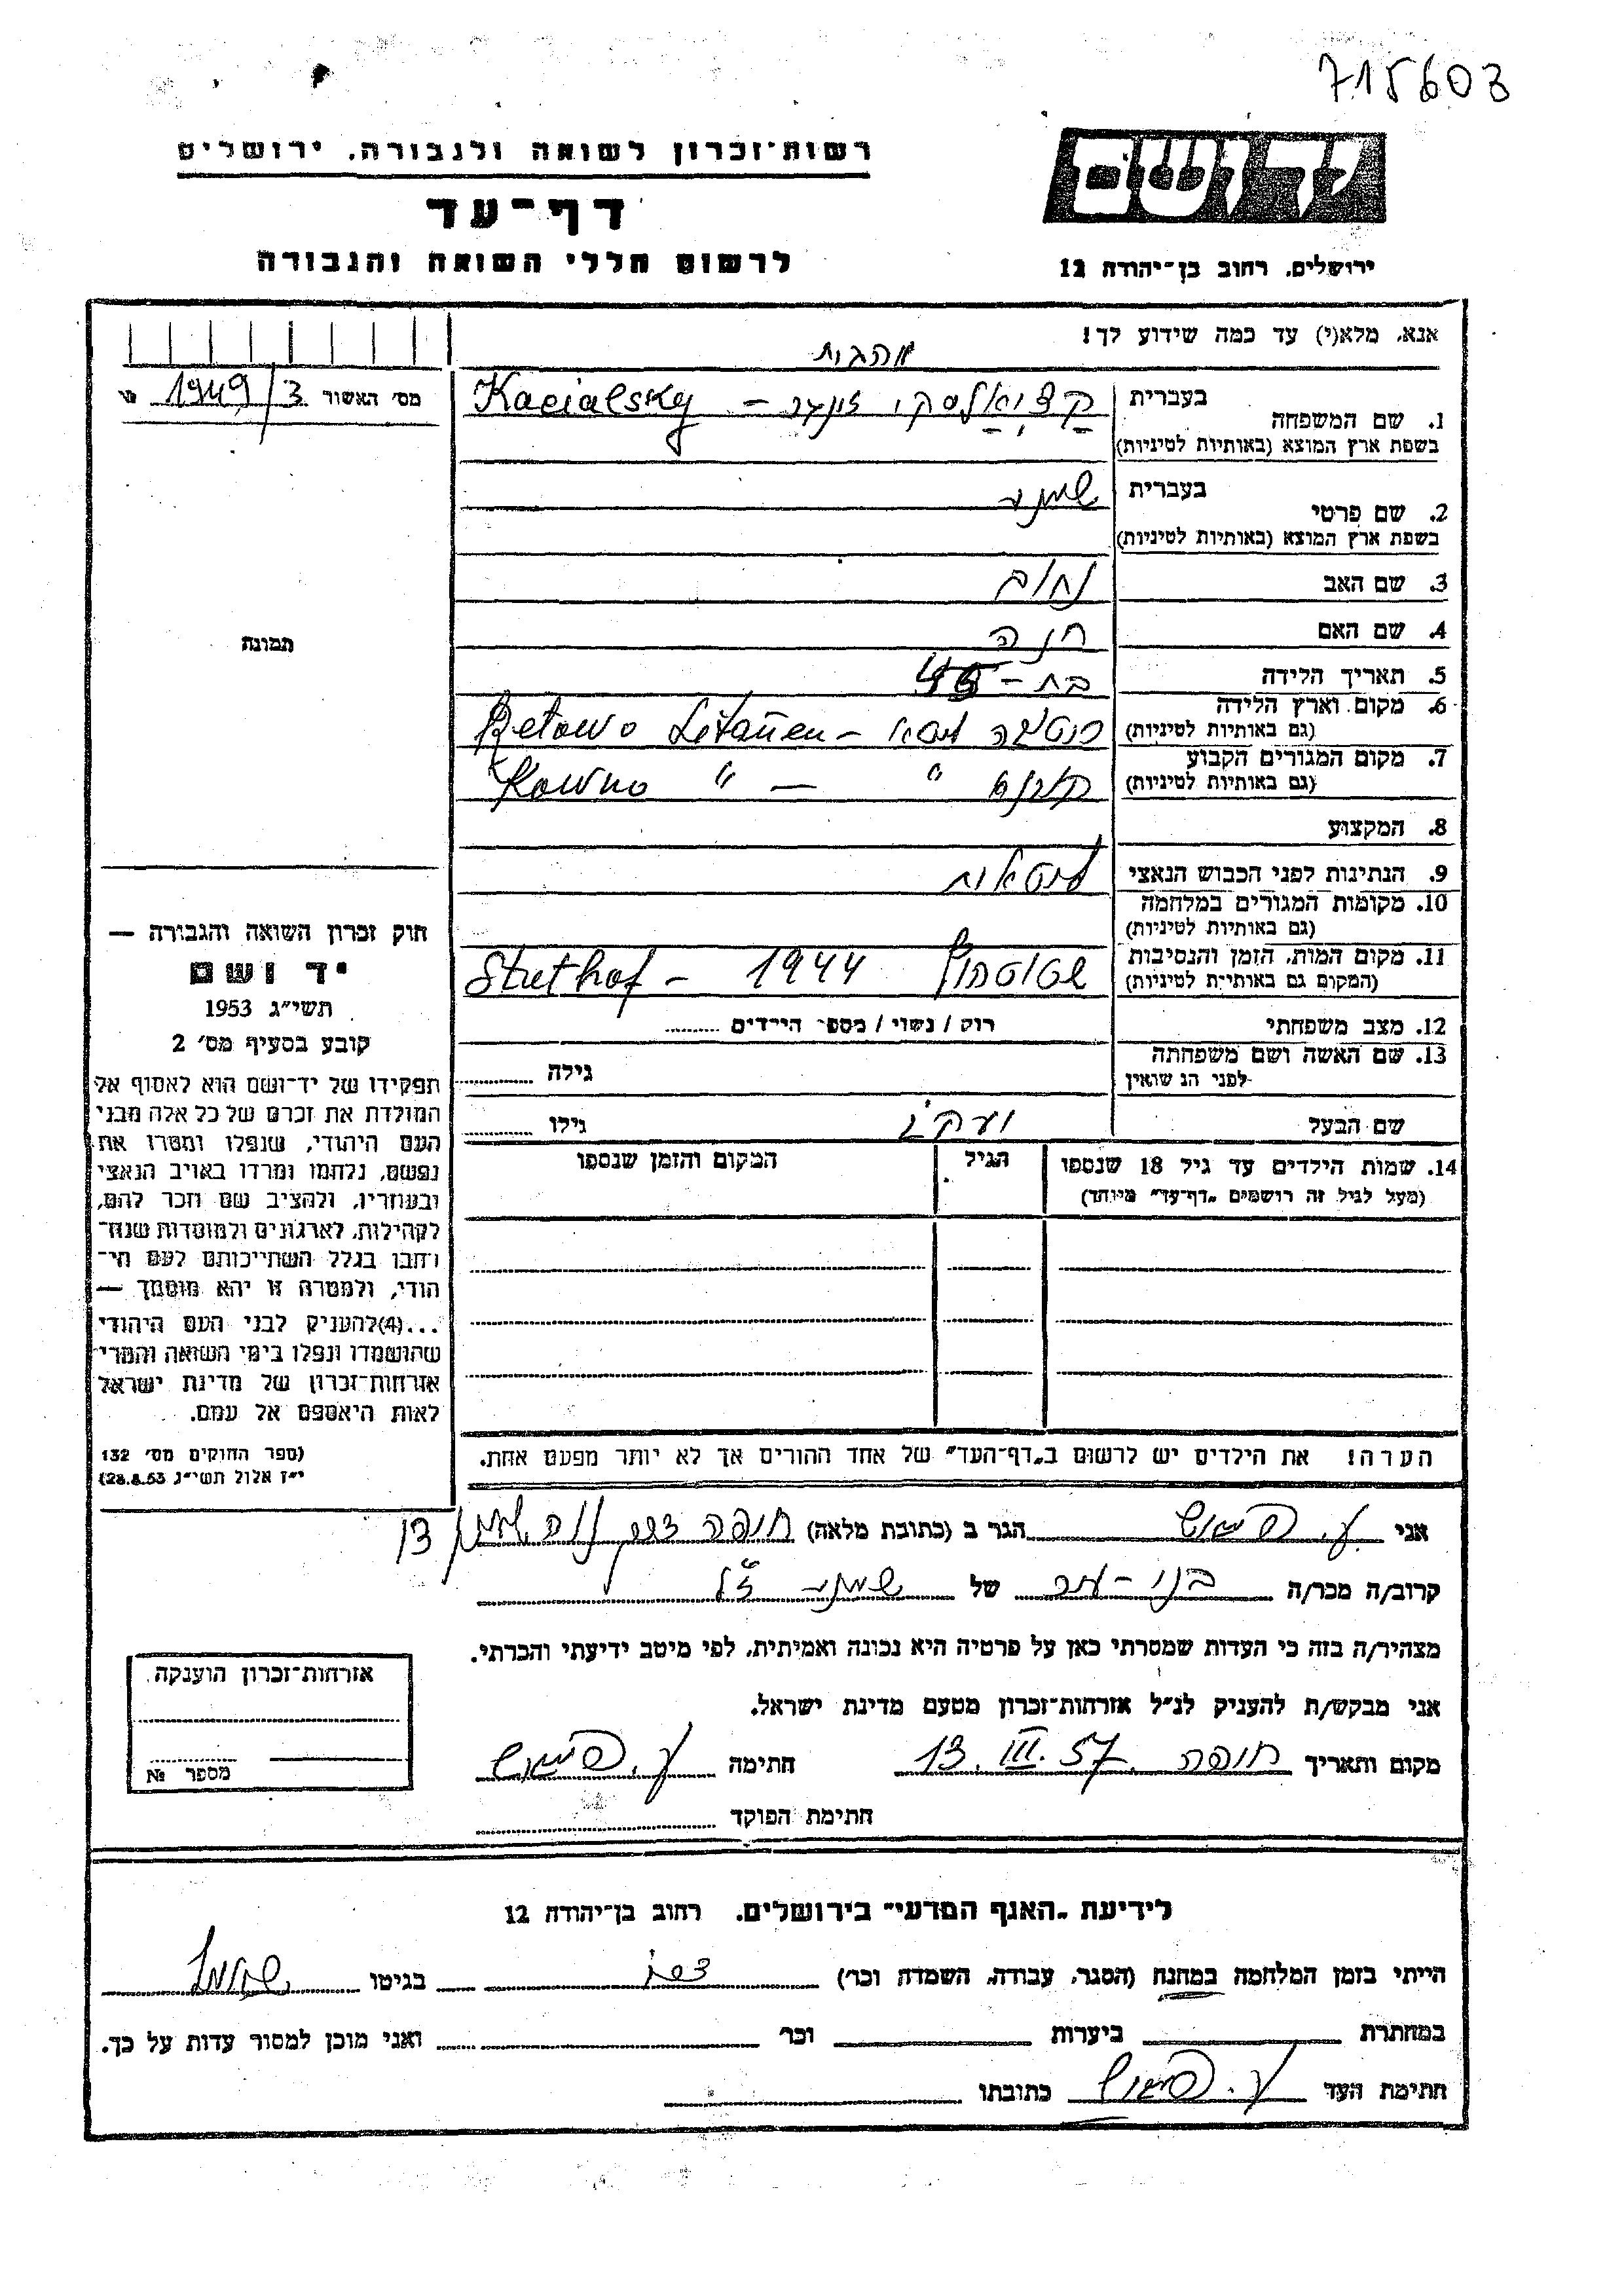 715603
רשות־זכרון לשואה ולגבורה. ירושלים
דף־עד
לרשום חללי השואה והגבורה
יד ושם
ירושלים. רחוב בן־יהודה 12
אנא, מלא(י) עד כמה שידוע לך!
מס׳ האשור 1949/3
1. שם המשפחה
בעברית
בשפת ארץ המוצא (באותיות לטיניות)
קציאלסקי – Kacialsky
2. שם פרטי
בעברית
בשפת ארץ המוצא (באותיות לטיניות)
3. שם האב
4. שם האם
חנה
5. תאריך הלידה
בת –
6. מקום וארץ הלידה
(גם באותיות לטיניות)
Retowo Litauen –
7. מקום המגורים הקבוע
(גם באותיות לטיניות)
קובנא " – " Kowno
8. המקצוע
9. הנתינות לפני הכבוש הנאצי
ליטאית
10. מקומות המגורים במלחמה
(גם באותיות לטיניות)
11. מקום המות, הזמן והנסיבות
(המקום גם באותיית לטיניות)
שטוטהוף 1944 – Stuthof
12. מצב משפחתי
רוק / נשוי / מספר הילדים
13. שם האשה ושם משפחתה
לפני הנשואין
גילה
שם הבעל
גילו
14. שמות הילדים עד גיל 18 שנספו
(מעל לגיל זה רושמים „דף־עד״ מיוחד)
הגיל
המקום והזמן שנספו
תמונה
חוק זכרון השואה והגבורה —
יד ושם
תשי״ג 1953
קובע בסעיף מס׳ 2
תפקידו של יד־ושם הוא לאסוף אל
המולדת את זכרם של כל אלה מבני
העם היהודי, שנפלו ומסרו את
נפשם, נלחמו ומרדו באויב הנאצי
ובעוזריו, ולהציב שם וזכר להם,
לקהילות, לארגונים ולמוסדות שנח־
רבו בגלל השתייכותם לעם הי־
הודי, ולמטרה זו יהא מוסמך —
...(4)להעניק לבני העם היהודי
שהושמדו ונפלו בימי השואה והמרי
אזרחות־זכרון של מדינת ישראל
לאות היאספם אל עמם.
(ספר החוקים מס׳ 132
י״ז אלול תשי״ג 28.8.53)
הערה! את הילדים יש לרשום ב„דף־העד״ של אחד ההורים אך לא יותר מפעם אחת.
אני
הגר ב (כתובת מלאה) חיפה 13
קרוב/ה מכר/ה של ז״ל
מצהיר/ה בזה כי העדות שמסרתי כאן על פרטיה היא נכונה ואמיתית, לפי מיטב ידיעתי והכרתי.
אני מבקש/ת להעניק לנ״ל אזרחות־זכרון מטעם מדינת ישראל.
מקום ותאריך חיפה 13. III. 57 חתימה
חתימת הפוקד
אזרחות־זכרון הוענקה
מספר №
לידיעת „האגף המדעי״ בירושלים. רחוב בן־יהודה 12
הייתי בזמן המלחמה במחנה (הסגר, עבודה, השמדה וכר׳) בגיטו
במחתרת ביערות וכר׳ ואני מוכן למסור עדות על כך.
חתימת העד כתובתו